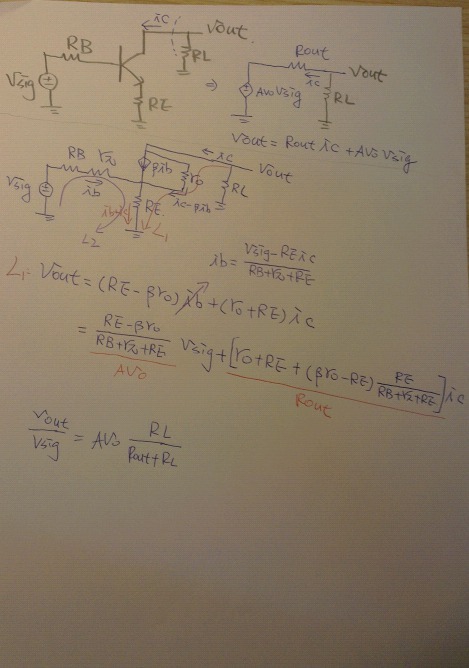 ic
RB
Vout.
RL
Vsig
RE
⇒
Rout
Vout
ic
AvoVsig
RL
Vout = Rout ic + Avo Vsig
RB rπ
βib
ro
ic
Vout
RL
Vsig
ib
RE
ic-βib
ib+ic
L2
L1
ib = (Vsig-REic)/(RB+rπ+RE)
L1: Vout = (RE-βro) ib + (ro+RE) ic
= (RE-βro)/(RB+rπ+RE) Vsig + [ro+RE+(βro-RE) RE/(RB+rπ+RE)] ic
Avo
Rout
Vout/Vsig = Avo RL/(Rout+RL)